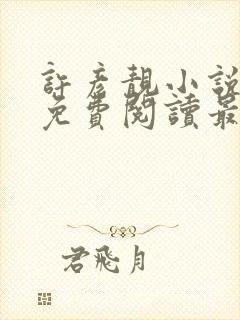 許彥靚小說
免費閱讀最
君飛月